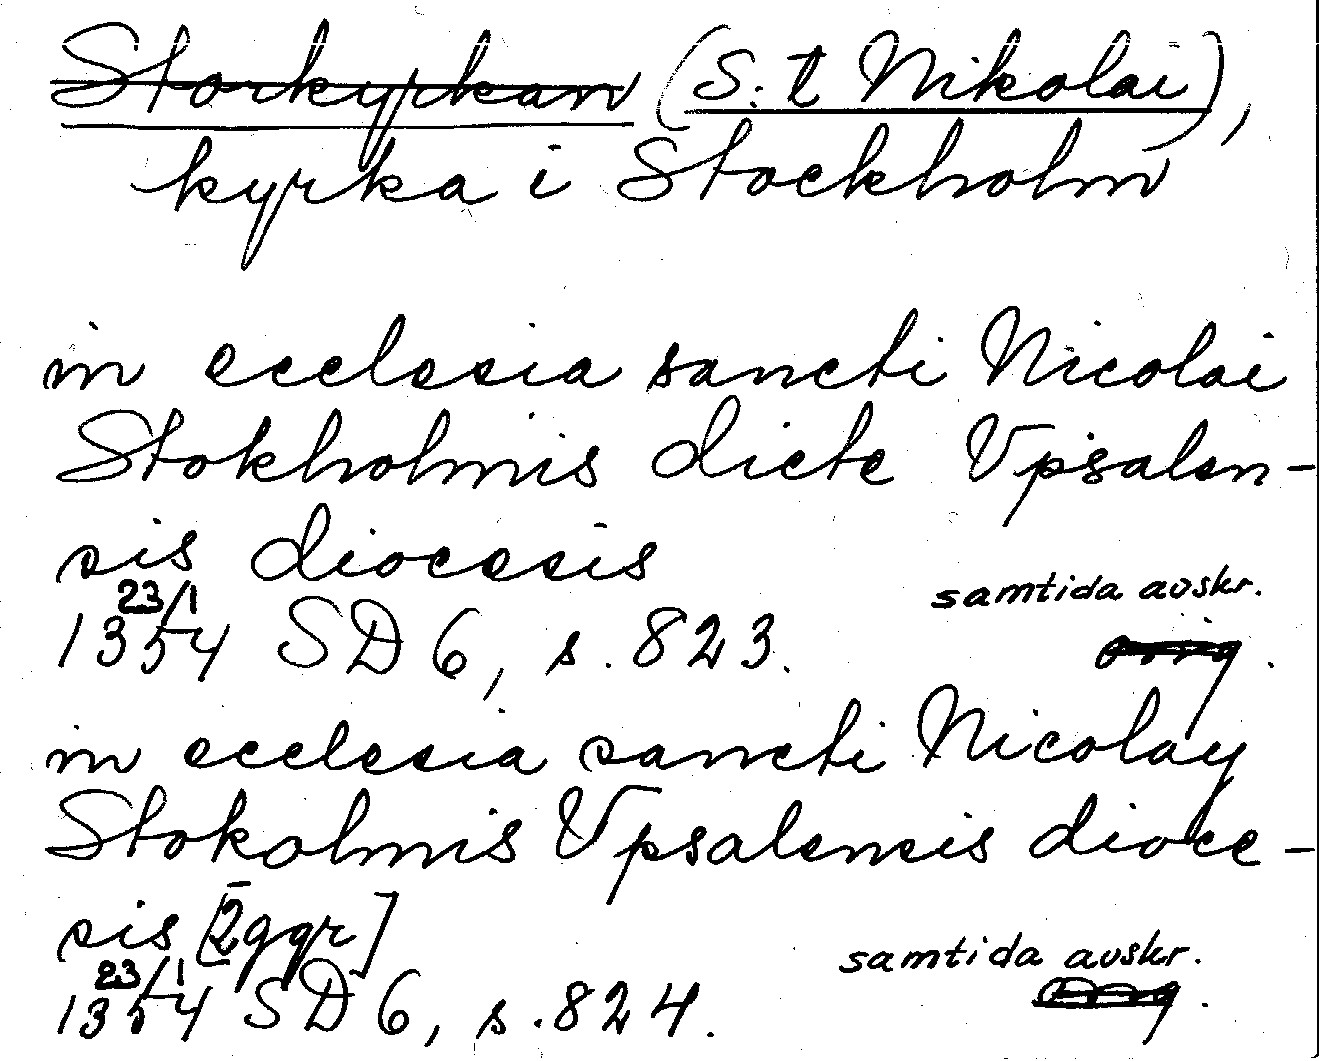 Storkyrkan (S:t Nikolai),
kyrka i Stockholm
in ecclesia sancti Nicolai
Stokholmis dicte Vpsalen-
sis diocesis
23/1 samtida avskr.
1354 SD 6, s. 823. orig.
in ecclesia sancti Nicolay
Stokolmis Vpsalensis dioce-
sis [2 ggr]
23/1 samtida avskr.
1354 SD 6, s. 824. orig.